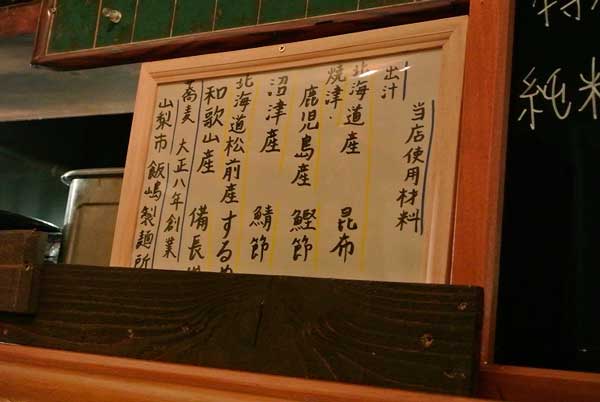 当店使用材料
出汁
北海道産 昆布
焼津・
鹿児島産 鰹節
沼津産 鯖節
北海道松前産するめ
和歌山産 備長
蕎麦 大正八年創業
山梨市 飯嶋製麺所
純米